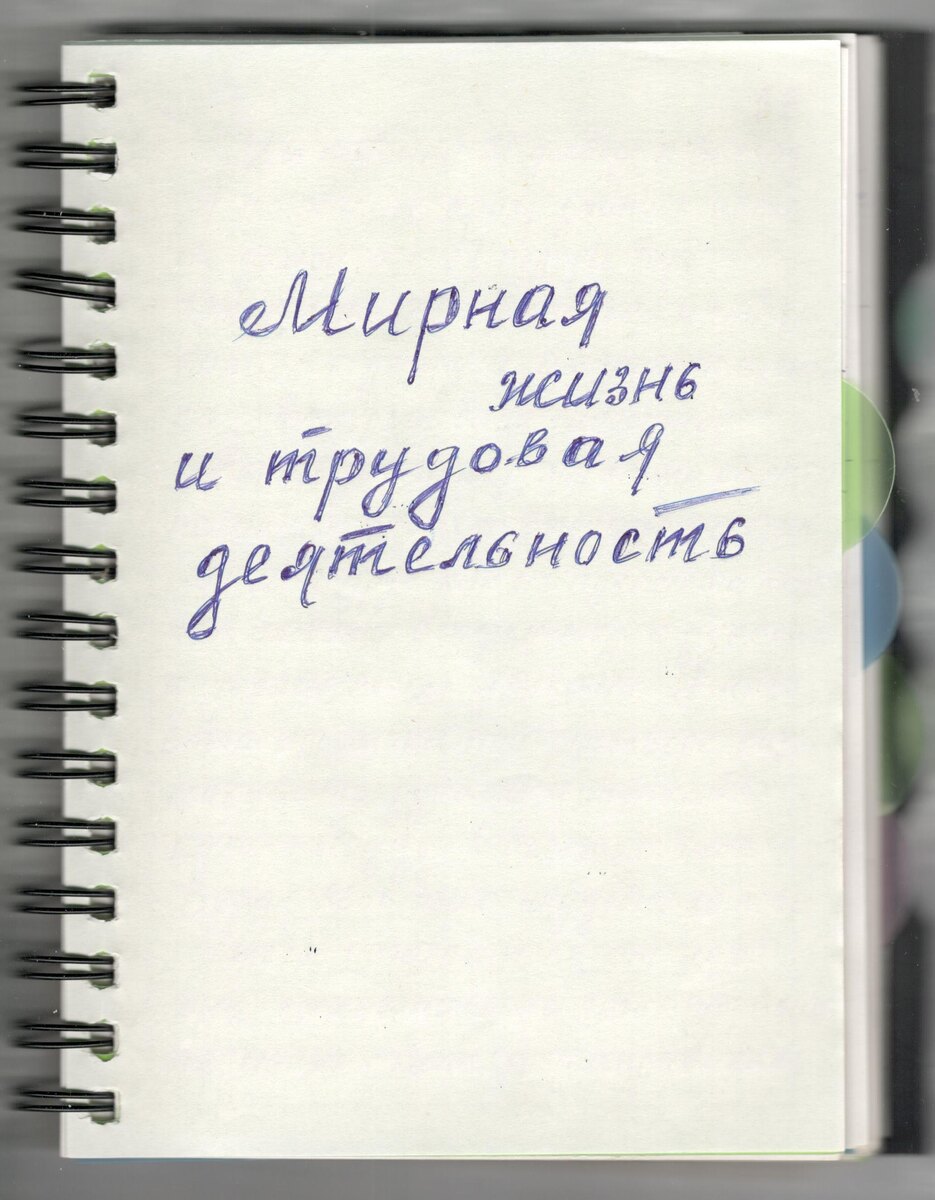 Мирная
жизнь
и трудовая
деятельность